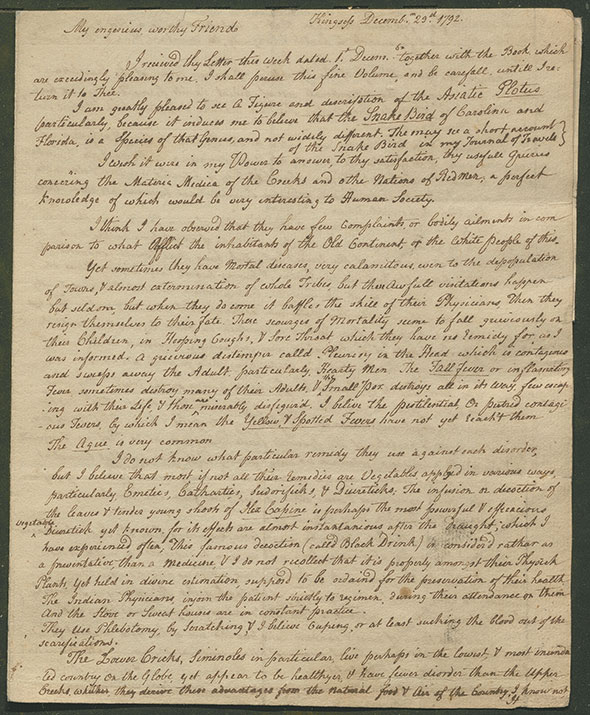 My ingenious worthy Friend
Kingsess Decembr. 29th. 1792.
I reciev'd thy Letter this week dated 1st. Decem. together with the Book which
are exceedingly pleasing to me, I shall peruse this fine Volume, and be carefull, untill I re-
turn it to Thee.
I am greatly pleased to see a Figure and description of the Asiatic Plotus
particularly, because it induces me to believe that the Snake Bird of Carolina and
Florida, is a Species of that Genus, and not widely different. Thee may see a short account
of the Snake Bird in my Journal of Travels }
I wish it were in my Power to answer, to thy satisfaction, thy usefull Queries
concerning the Materia Medica of the Creeks and othe Nations of Redmen, a perfect
knowledge of which would be very interesting to Human Society.
I think I have observed that they have few Complaints or bodily ailments in com
parison to what Afflict the inhabitants of the Old Continent, or the White people of this.
Yet sometimes they have Mortal diseases, very calamitous, even to the depopulation
of Towns, & almost extermination of whole Tribes, but these awfull visitations happen
but seldom, but when they do come it baffles the skill of their Physicians, Then they
resign themselves to their fate. These scourges of Mortality seems to fall grieviously on
their Children, in Hooping Coughs, & Sore Throat which they have no remidy for, as I
was informed. A grievous distemper called Pleurisy in the Head which is contagious
and sweeps away the Adult, particularly Hearty Men. The Fall fever or inflamatory
Fever sometimes destroy many of their Adults, & the Small Pox destroys all in its way, few escap-
ing with their Life, & those are miserably disfigured. I belive the pestilential, Or putrid contagi-
-ous Fevers, by which I mean the Yellow & Spotted Fevers have not yet reach't them
The Ague is very common
I do not know what particular remedy they use against each disorder,
but I beleave that most if not all their remedies are Vegetables applyed in various ways,
particularly Emetics, Cathartics, Sudorificks, & Diureticks. The infusion or decoction of
the leaves & tender young shoots of Ilex Casine is perhaps the most powerful & efficacious
vegetable
Diuretick yet known, for its effects are almost instantanious after the draught; which I
have experienced often, This famous decoction (called Black Drink) is considerd rathar as
a preventative than a Medicine & I do not recollect that it is properly amongst their Physick
Plants, yet held in divine estimation supposd to be ordaind for the preservation of their health.
The Indian Physicians, injoin the patient strictly to regimen, during their attendance on them
And the Stove or Sweat houses are in constant practice.
They Use Phlebotomy, by Scratching & I believe Cuping, or at least sucking the blood out of the
scarifications.
The Lower Creeks, Siminoles in particular, live perhaps in the lowest, & most inunda
ed country On the Globe, yet appear to be healthyer, & have fewer disorder than the Upper
Creeks, whither they derive these advantages from the natural food & Air of the Country, I know not